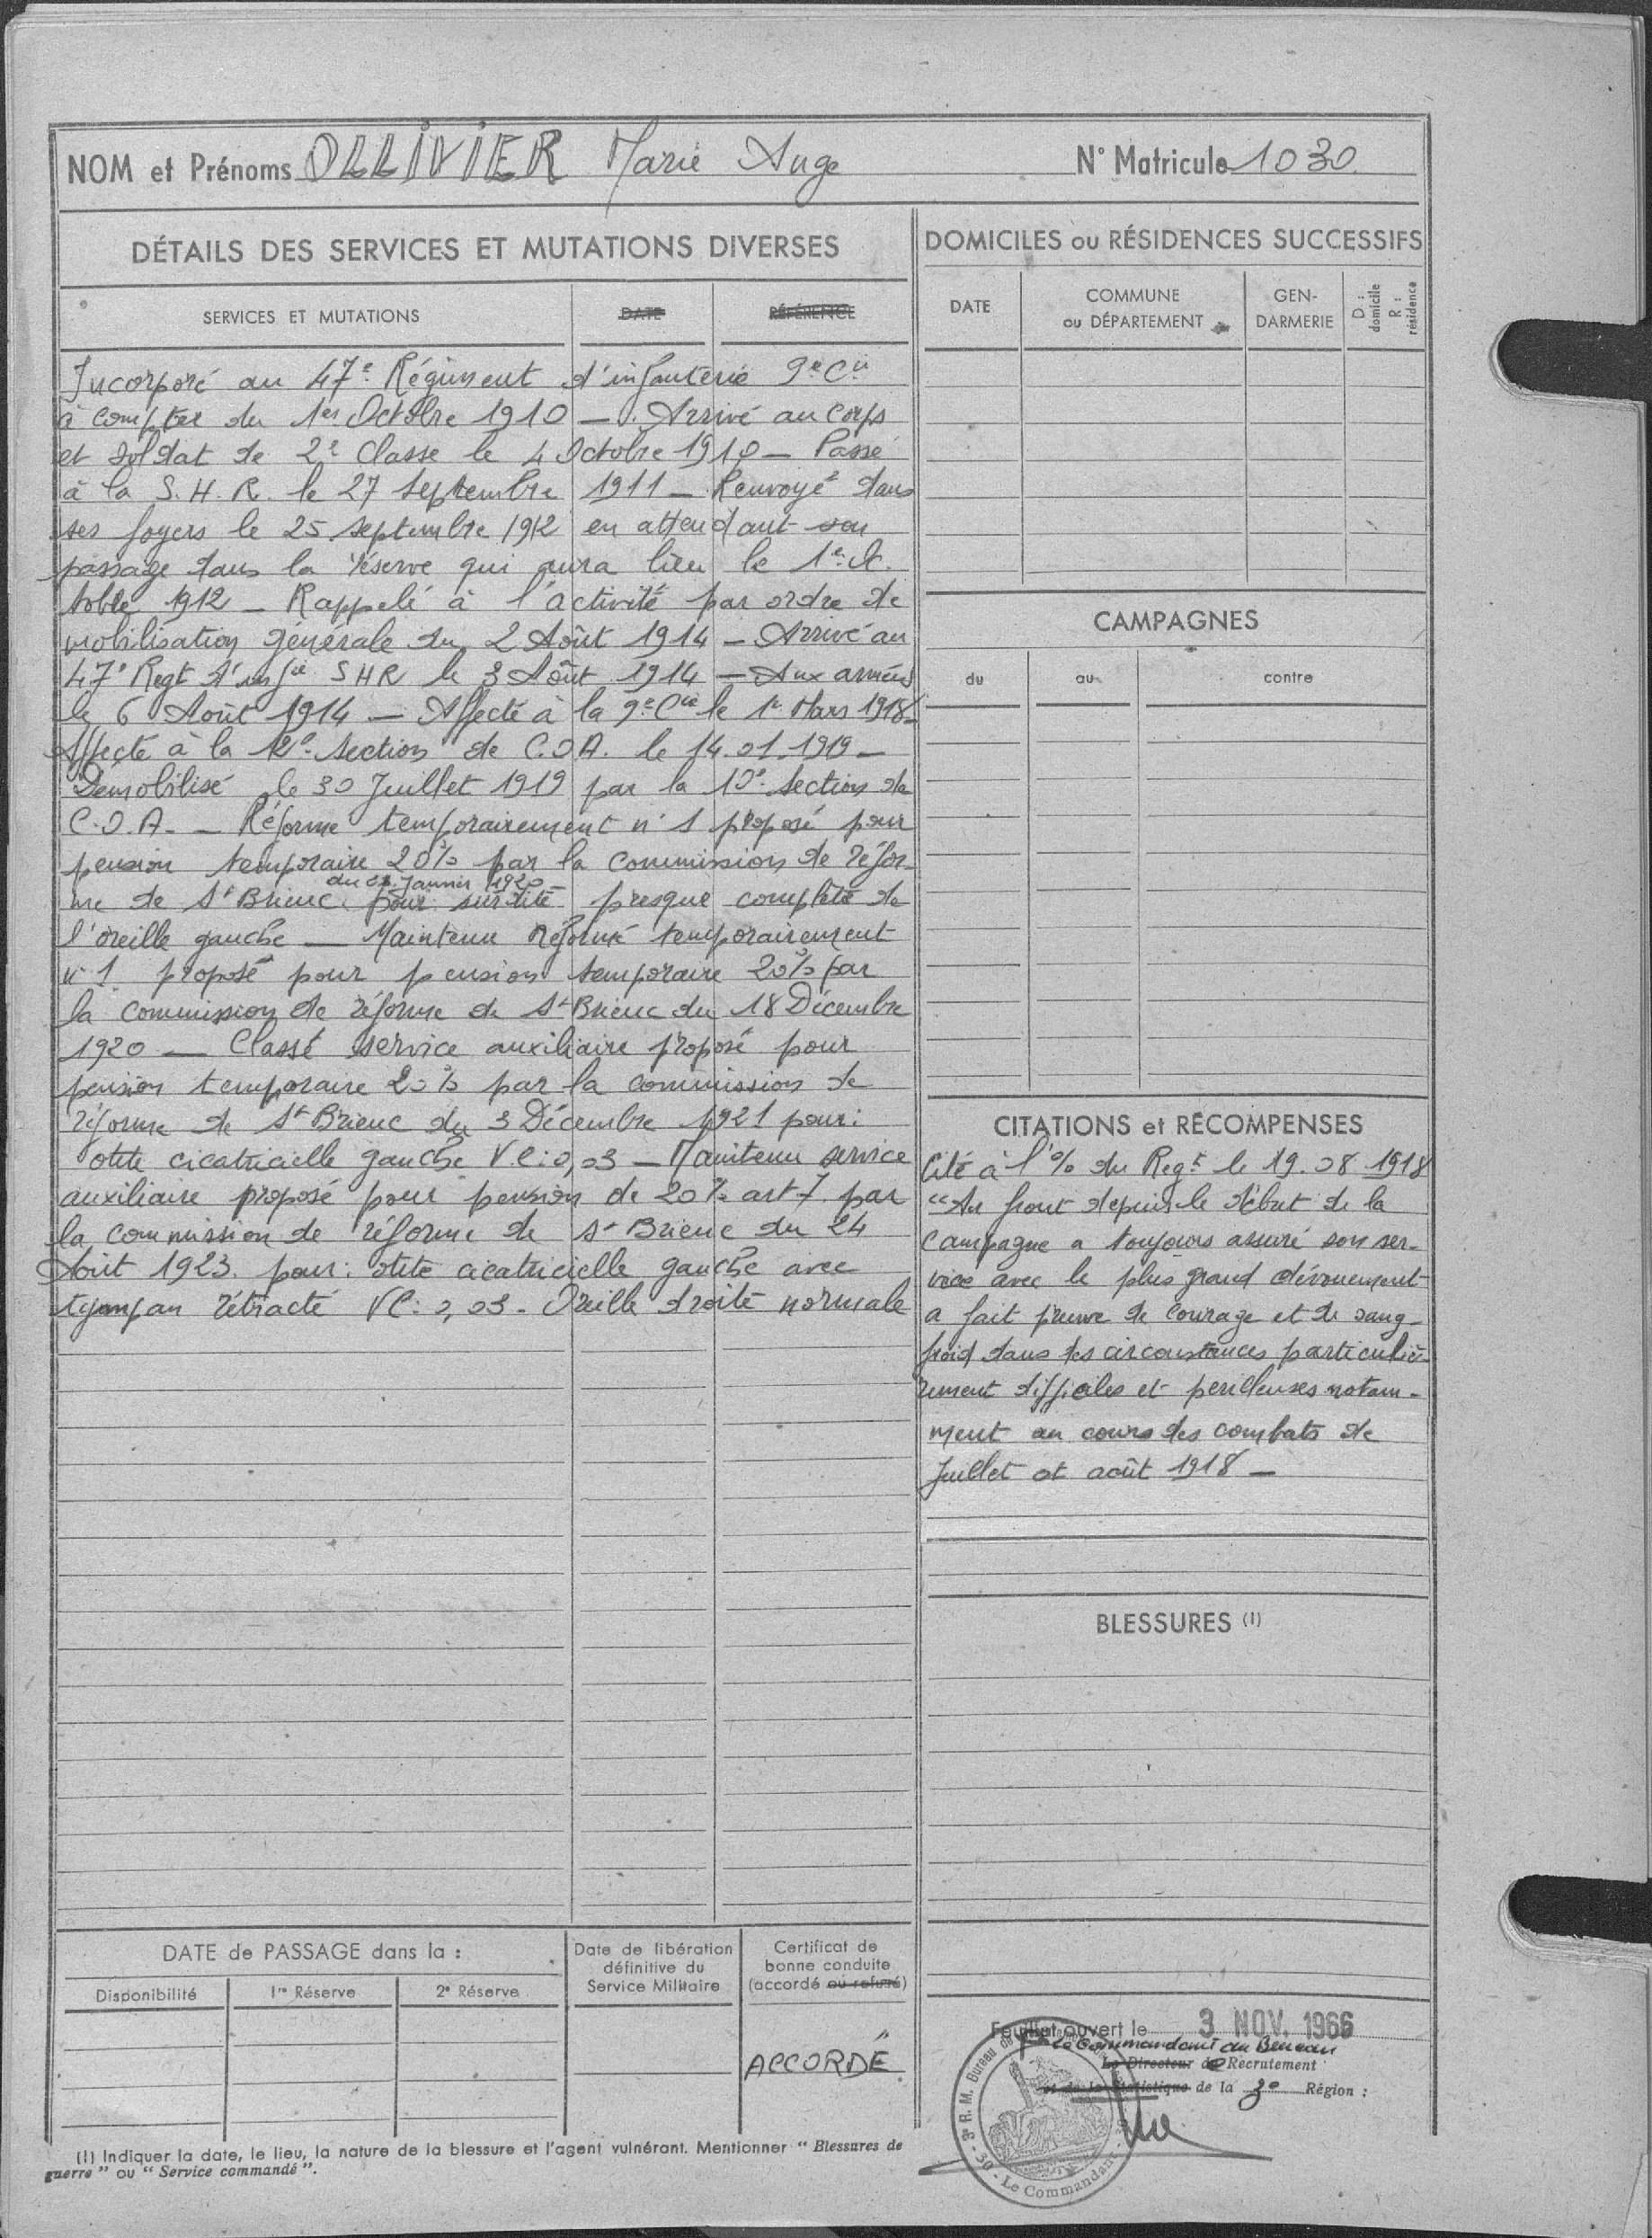 NOM et Prénoms OLLIVIER Marie Ange N° Matricule 1030.
DÉTAILS DES SERVICES ET MUTATIONS DIVERSES
SERVICES ET MUTATIONS DATE RÉFÉRENCE
Incorporé au 47e Régiment d'infanterie 9e Cie
à compter du 1er Octobre 1910 — Arrivé au corps
et soldat de 2e Classe le 4 Octobre 1910 — Passé
à la S.H.R. le 27 Septembre 1911 — Renvoyé dans
ses foyers le 25 Septembre 1912 en attendant son
passage dans la réserve qui aura lieu le 1er Oc.
tobre 1912 — Rappelé à l'activité par ordre de
mobilisation générale du 2 Août 1914 — Arrivé au
47e Regt d'infie SHR le 3 Août 1914 — Aux armées
le 6 Août 1914 — Affecté à la 9e Cie le 1er Mars 1918 —
Affecté à la 12e Section de C.O.A. le 14.01.1919 —
Démobilisé le 30 Juillet 1919 par la 10e Section de
C.O.A. — Réformé temporairement n° 1 proposé pour
pension temporaire 20% par la commission de réfor-
du 08 Janvier 1920
me de St Brieuc pour surdité presque complète de
l'oreille gauche — Maintenu Réformé temporairement
n° 1 proposé pour pension temporaire 20% par
la commission de réforme de St Brieuc du 18 Décembre
1920 — Classé service auxiliaire proposé pour
pension temporaire 20% par la commission de
réforme de St Brieuc du 3 Décembre 1921 pour:
otite cicatricielle gauche V.C: 0,03 — Maintenu service
auxiliaire proposé pour pension de 20% art 7 par
la commission de réforme de St Brieuc du 24
Août 1923. pour: otite cicatricielle gauche avec
tympan rétracté VC: 0,03 - Oreille droite normale
DATE de PASSAGE dans la :
Disponibilité 1re Réserve 2e Réserve
Date de libération
définitive du
Service Militaire
Certificat de
bonne conduite
(accordé ou refusé)
ACCORDÉ
(1) Indiquer la date, le lieu, la nature de la blessure et l'agent vulnérant. Mentionner “ Blessures de
guerre ” ou “ Service commandé ”.
DOMICILES ou RÉSIDENCES SUCCESSIFS
DATE
COMMUNE
ou DÉPARTEMENT
GEN-
DARMERIE
D :
domicile
R :
résidence
CAMPAGNES
du au contre
CITATIONS et RÉCOMPENSES
Cité à l'% du Regt le 19.08.1918
“Au front depuis le début de la
campagne a toujours assuré son ser-
vice avec le plus grand dévouement
a fait preuve de courage et de sang-
froid dans des circonstances particuliè-
rement difficiles et perilleuses notam-
ment au cours des combats de
Juillet et août 1918 —
BLESSURES (1)
Feuillet ouvert le 3 NOV. 1966
Le Commandant du Bureau
Le Directeur de Recrutement
et de la Statistique de la 3e Région :
3e R. M. Bureau de
- 30 - Le Commandant -